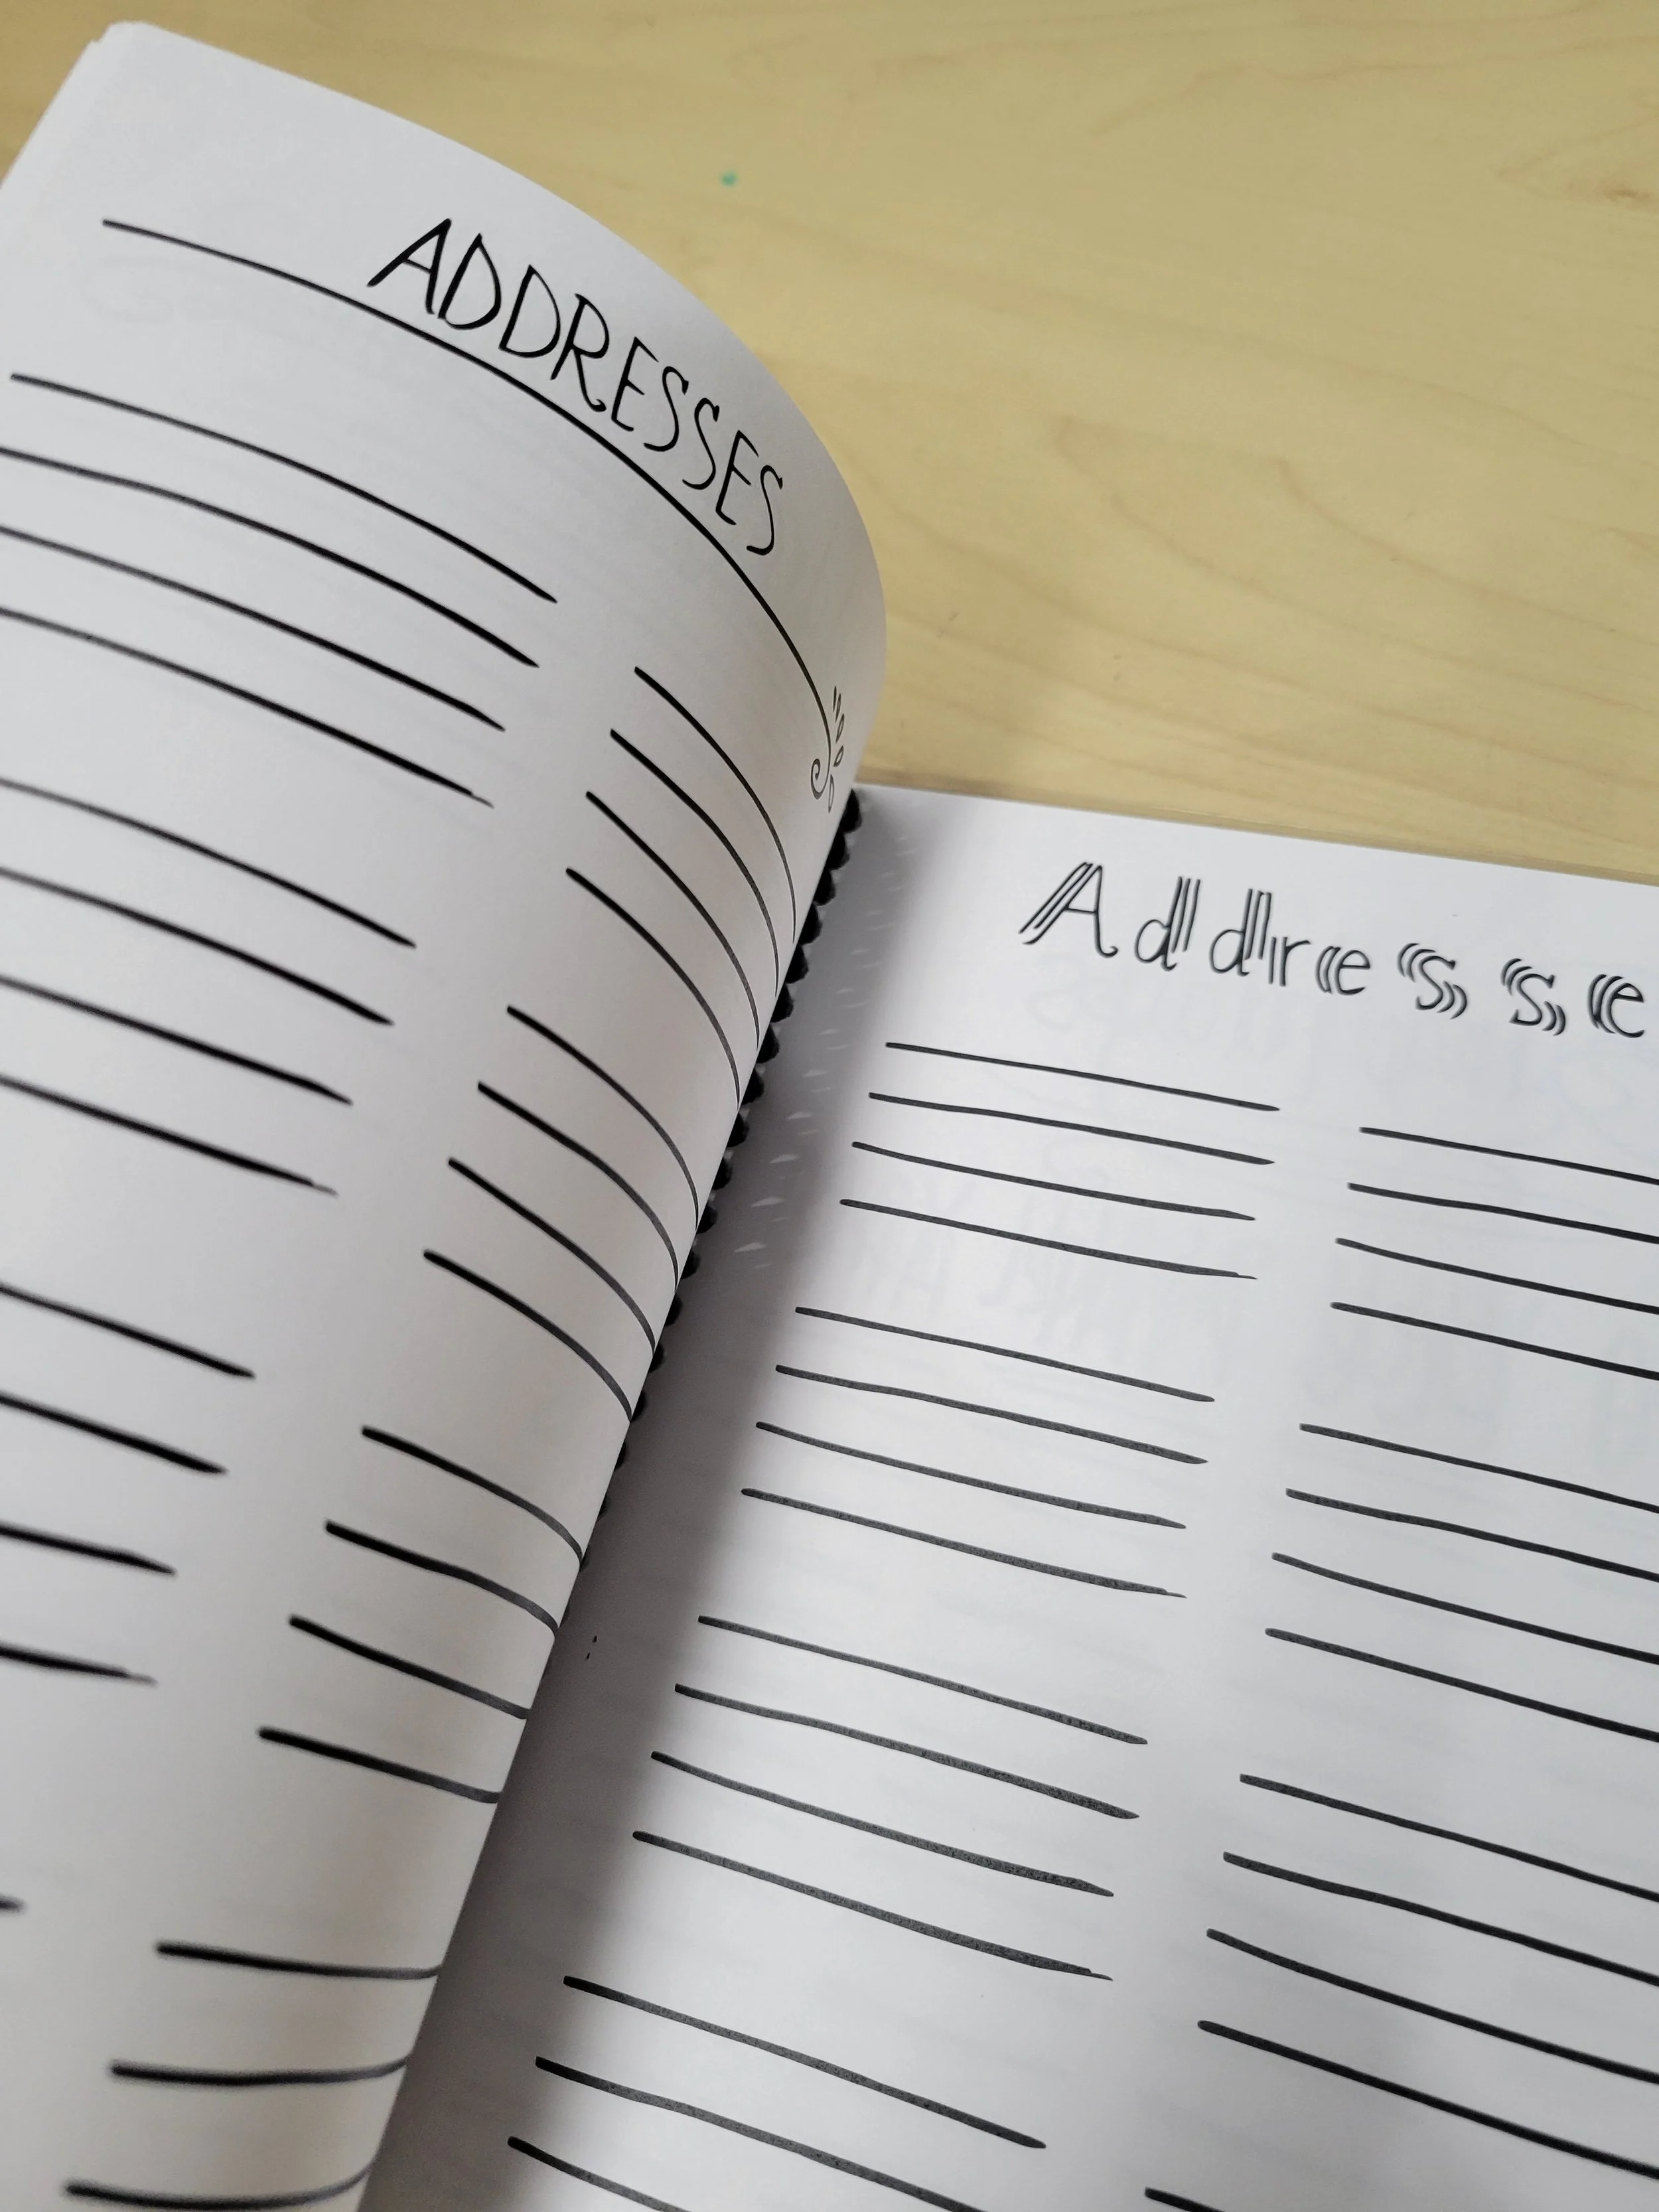 ADDRESSES
Addresse